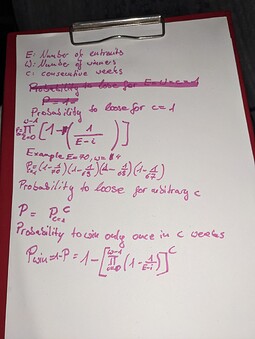 E: Number of entrants
W: Number of winners
C: consecutive weeks
Probability to loose for c=1
P=∏_{i=0}^{w-1} [1-(1/(E-i))]
Example E=70, w=4
(1-1/70)(1-1/69)(1-1/68)(1-1/67)
Probability to loose for arbitrary c
P = P_{c=1}^C
Probability to win only once in c weeks
P_win=1-P=1-[∏_{i=0}^{w-1}(1-1/(E-i))]^C